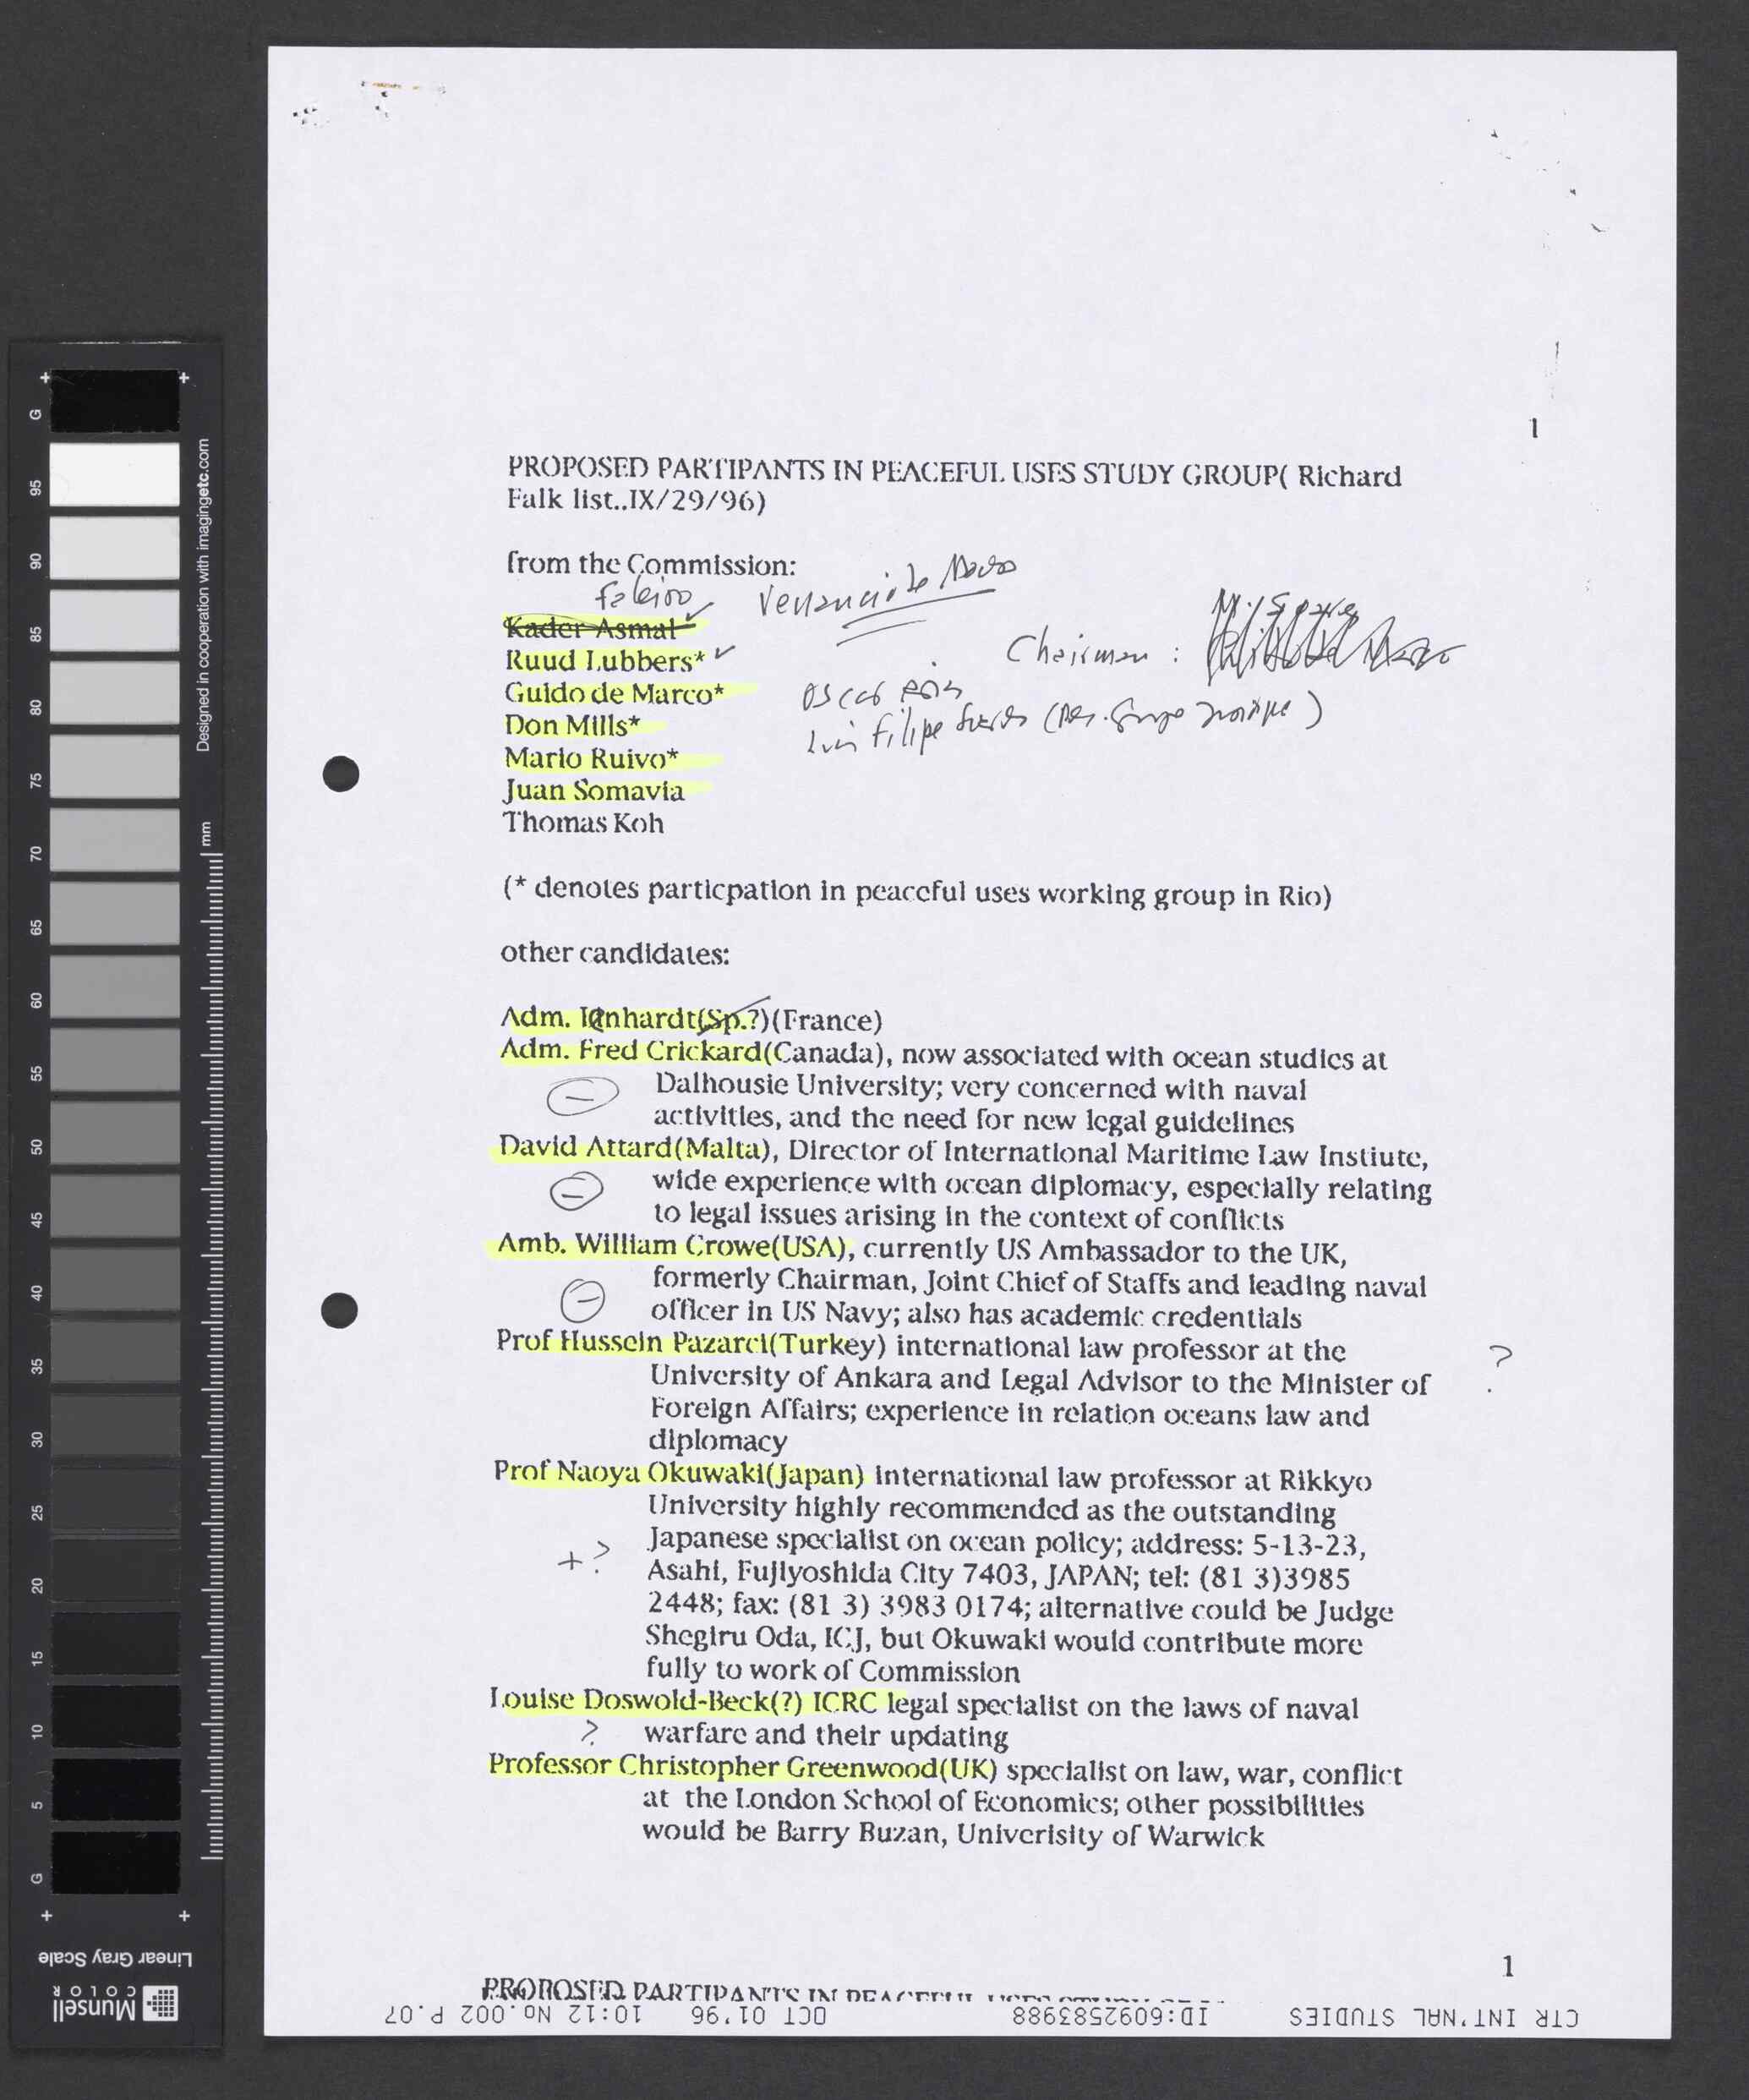 1
PROPOSED PARTIPANTS IN PEACEFUL USES STUDY GROUP( Richard
Falk list..IX/29/96)
from the Commission:
Faleiro
Kader Asmal
Ruud Lubbers*
Chairman :
Guido de Marco*
Oscar
Don Mills*
Luis Filipe
Mario Ruivo*
Juan Somavia
Thomas Koh
(* denotes particpation in peaceful uses working group in Rio)
other candidates:
Adm. Lanhardt(Sp.?)(France)
Adm. Fred Crickard(Canada), now associated with ocean studies at
Dalhousie University; very concerned with naval
activities, and the need for new legal guidelines
David Attard(Malta), Director of International Maritime Law Instiute,
wide experience with ocean diplomacy, especially relating
to legal issues arising in the context of conflicts
Amb. William Crowe(USA), currently US Ambassador to the UK,
formerly Chairman, Joint Chief of Staffs and leading naval
officer in US Navy; also has academic credentials
Prof Hussein Pazarci(Turkey) international law professor at the
?
University of Ankara and Legal Advisor to the Minister of
Foreign Affairs; experience in relation oceans law and
diplomacy
Prof Naoya Okuwaki(Japan) international law professor at Rikkyo
University highly recommended as the outstanding
Japanese specialist on ocean policy; address: 5-13-23,
+?
Asahi, Fujiyoshida City 7403, JAPAN; tel: (81 3)3985
2448; fax: (81 3) 3983 0174; alternative could be Judge
Shegiru Oda, ICJ, but Okuwaki would contribute more
fully to work of Commission
Louise Doswold-Beck(?) ICRC legal specialist on the laws of naval
? warfare and their updating
Professor Christopher Greenwood(UK) specialist on law, war, conflict
at the London School of Economics; other possibilities
would be Barry Buzan, Univerisity of Warwick
1
PROPOSED PARTIPANTS IN PEACEFUL USES
CTR INT'NAL STUDIES ID:6092583988 OCT 01'96 10:12 No.002 P.07
Designed in cooperation with imagingetc.com
mm
G 95 90 85 80 75 70 65 60 55 50 45 40 35 30 25 20 15 10 5 G
Linear Gray Scale
Munsell
COLOR